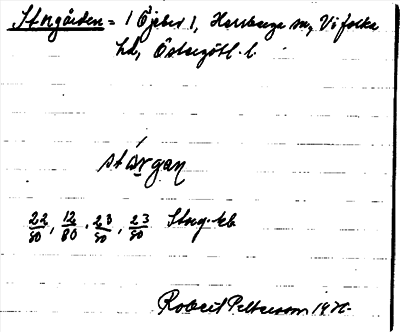 Storgården = 1 Öjebro 1, Herrberga sn, Vifolka
hd, Östergötl. l.
stårgan
22/80, 12/80, 23/80, 23/80 Storg.
Robert Pettersson 19